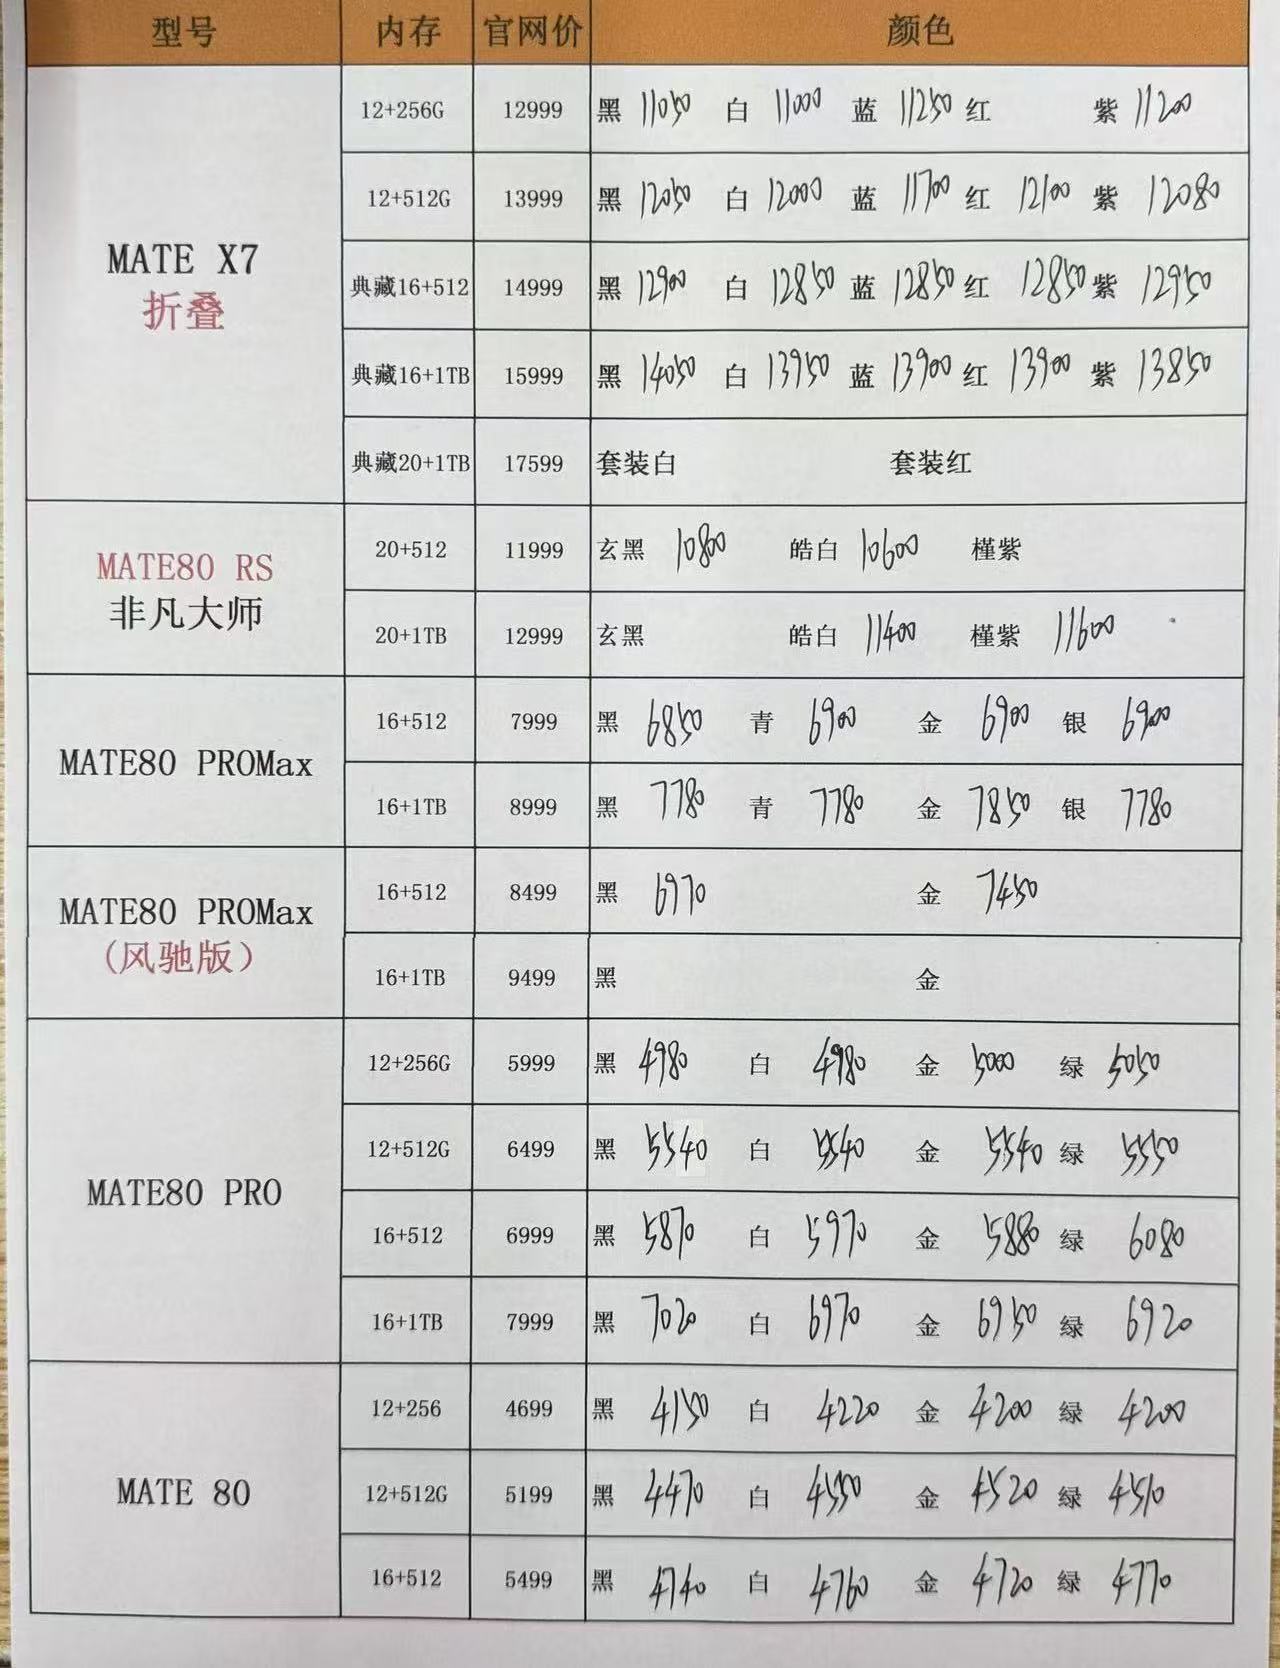 型号 内存 官网价 颜色
MATE X7
折叠
12+256G 12999 黑 11050 白 11000 蓝 11250 红 紫 11200
12+512G 13999 黑 12050 白 12000 蓝 11700 红 12100 紫 12080
典藏16+512 14999 黑 12900 白 12850 蓝 12850 红 12850 紫 12950
典藏16+1TB 15999 黑 14050 白 13950 蓝 13900 红 13900 紫 13850
典藏20+1TB 17599 套装白 套装红
MATE80 RS
非凡大师
20+512 11999 玄黑 10800 皓白 10600 槿紫
20+1TB 12999 玄黑 皓白 11400 槿紫 11600
MATE80 PROMax
16+512 7999 黑 6850 青 6900 金 6900 银 6900
16+1TB 8999 黑 7780 青 7780 金 7850 银 7780
MATE80 PROMax
(风驰版)
16+512 8499 黑 6970 金 7450
16+1TB 9499 黑 金
MATE80 PRO
12+256G 5999 黑 4980 白 4980 金 5000 绿 5050
12+512G 6499 黑 5540 白 5540 金 5540 绿 5550
16+512 6999 黑 5870 白 5970 金 5880 绿 6080
16+1TB 7999 黑 7020 白 6970 金 6950 绿 6920
MATE 80
12+256 4699 黑 4150 白 4220 金 4200 绿 4200
12+512G 5199 黑 4470 白 4550 金 4520 绿 4510
16+512 5499 黑 4740 白 4760 金 4720 绿 4770